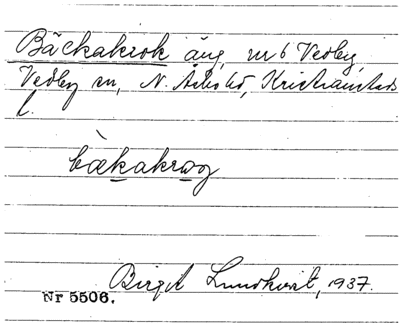 Bäckakrok äng, nr 6 Vedby,
Vedby sn, N. Åsbo hd, Kristianstads
l.
bækakrog
Birgit Lundkvist, 1937.
Nr 5506.